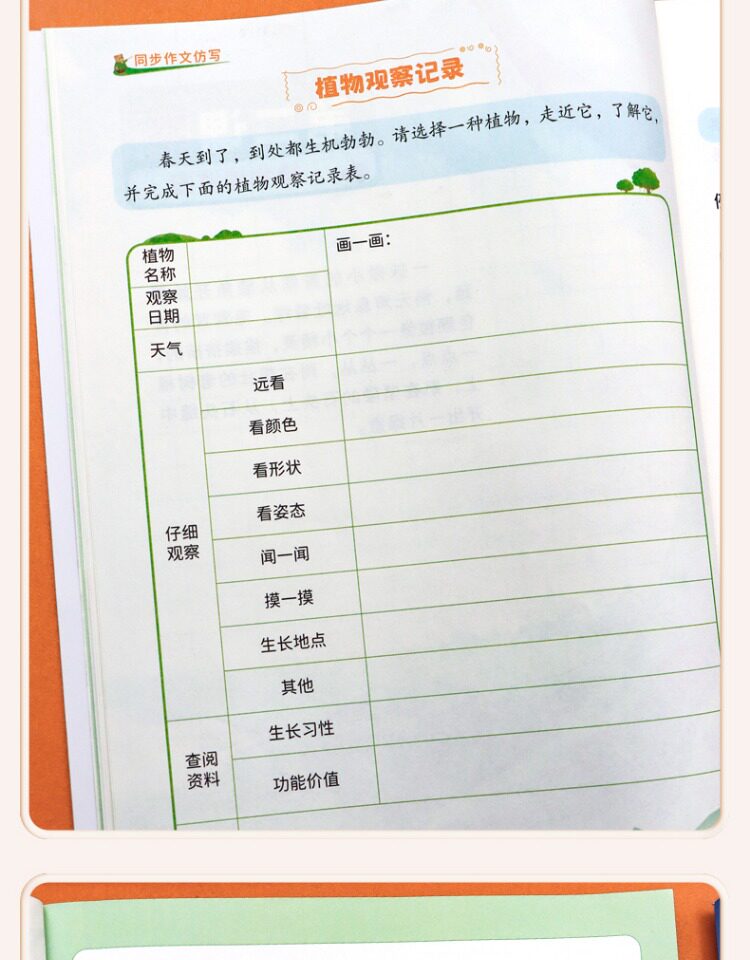 同步作文仿写
植物观察记录
春天到了，到处都生机勃勃。请选择一种植物，走近它，了解它，
并完成下面的植物观察记录表。
植物
名称
画一画：
观察
日期
天气
仔细
观察
远看
看颜色
看形状
看姿态
闻一闻
摸一摸
生长地点
其他
查阅
资料
生长习性
功能价值